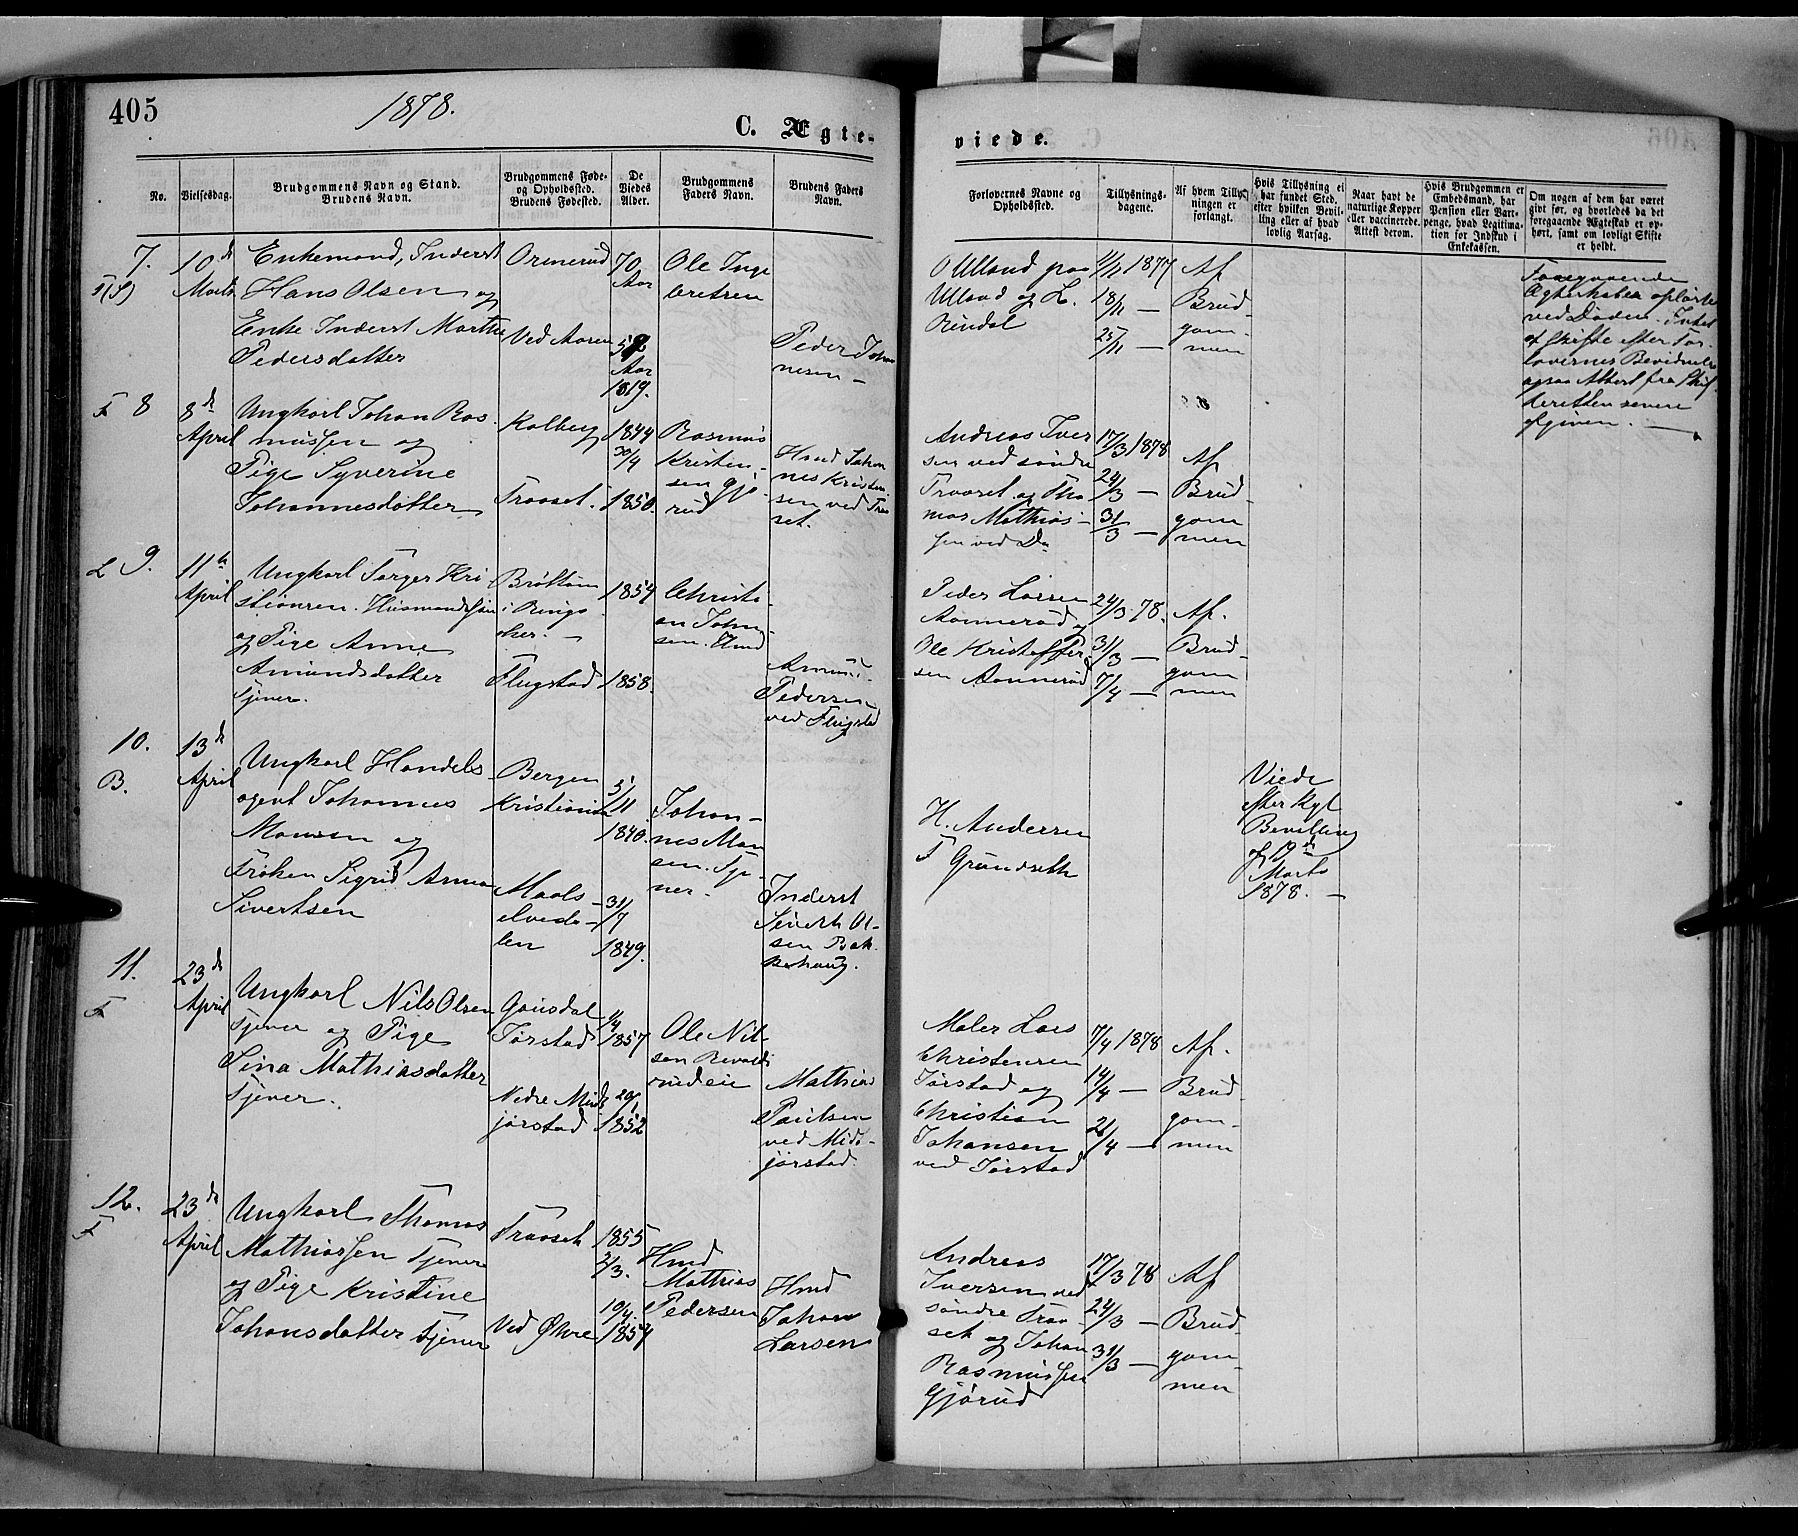 405
1878.
C. Ægte-
viede.
No.
Vielsesdag.
Brudgommens Navn og Stand.
Brudens Navn.
Brudgommens Føde-
og Opholdssted.
Brudens Fødested.
De
Viedes
Alder.
Brudgommens
Faders Navn.
Brudens Faders
Navn.
Forlovernes Navne og
Opholdssted.
Tillysnings-
dagene.
Af hvem Tillys-
ningen er
forlangt.
Hvis Tillysning ei
har fundet Sted,
efter hvilken Bevil-
ling eller af hvad
lovlig Aarsag.
Naar havt de
naturlige Kopper
eller vaccinerede.
Attest derom.
Hvis Brudgommen er
Embedsmand, har
Pension eller Vart-
penge, hvad Legitima-
tion for Indskud i
Enkekassen.
Om nogen af dem har været
givt før, og hvorledes da det
foregaaende Ægteskab er op-
hørt, samt om lovligt Skifte
er holdt.
7.
10de
Marts
Enkemand, Inderst
Hans Olsen og
Enke Inderst Marthe
Pedersdatter
Ormerud
Ved Aaren
70
Aar
Aar
1819.
Ole Inge
bretsen
Peder Johan
nesen –
O Ulland paa
Ulland og L.
Rindal
11/11 1877
18/11 –
25/11 –
Af
Brud-
gom-
men
Foregaaende
Ægteskaber opløste
ved Døden. Intet
at skifte efter For-
lovernes Bevidnelse
ogsaa Attest fra Skif
teretten senere
afgiven. –
F 8
8de
April
Ungkarl Johan Ras
mussen og
Pige Syverine
Johannesdatter
Kalberg
Traaset.
1844
30/4
1850.
Rasmus
Kristen-
sen Gjø-
rud
Hmd Johan
nes Kristen
sen ved Traa
set.
Andreas Iver
sen ved søndre
Traaset og Tho
mas Mathias-
sen ved Do
17/3 1878
24/3 –
31/3 –
Af
Brud-
gom
men
L 9.
11te
April
Ungkarl Torger Kri
stiansen. Husmandssøn
og Pige Anne
Amundsdatter
Tjener.
Brøttum
i Ringe
aker. –
Flugstad
1854
1858.
Christi-
an John-
sen. Hmd
Amund
Pedersen
ved Flugstad
Peder Larsen
Aannerud og
Ole Kristoffer-
sen Aannerud
24/3 78.
31/3 –
7/4 –
Af.
Brud-
gom
men
10.
B.
13de
April
Ungkarl Handels
agent Johannes
Monsen og
Frøken Sigrid Anna
Sivertsen
Bergen
Kristiania
Maals-
elveda-
len
5/11
1840.
31/7
1849.
Johan-
nes Mon
sen. Tje-
ner.
Inderst
Sivert Ol-
sen Bak
kehaug.
H. Andersen
T Grundseth
Viede
efter Kgl
Bevilling
af
Marts
1878. –
11.
F
23de
April
Ungkarl Nils Olsen
Tjener og Pige
Sina Mathiasdatter
Tjener.
Gausdal
Jørstad
Nedre Mids
jørstad
1/4
1857
29/1
1852
Ole Nil-
sen
rudeie
Mathias
Paulsen
ved Mids-
jørstad
Maler Lars
Christensen
Jørstad og
Christian
Johansen
ved Jørstad
7/4 1878
14/4 –
21/4 –
Af.
Brud-
gom-
men
12.
F
23de
April
Ungkarl Thomas
Mathiassen Tjener
og Pige Kristine
Johansdatter Tjener
Traaset
Ved Økre
1855
2/3.
10/4
1854
Hmd
Mathias
Pedersen
Hmd
Johan
Larsen
Andreas
Iversen ved
søndre Traa-
set og Johan
Rasmussen
Gjørud
17/3 78
24/3 –
31/3 –
Af
Brud-
gom-
men